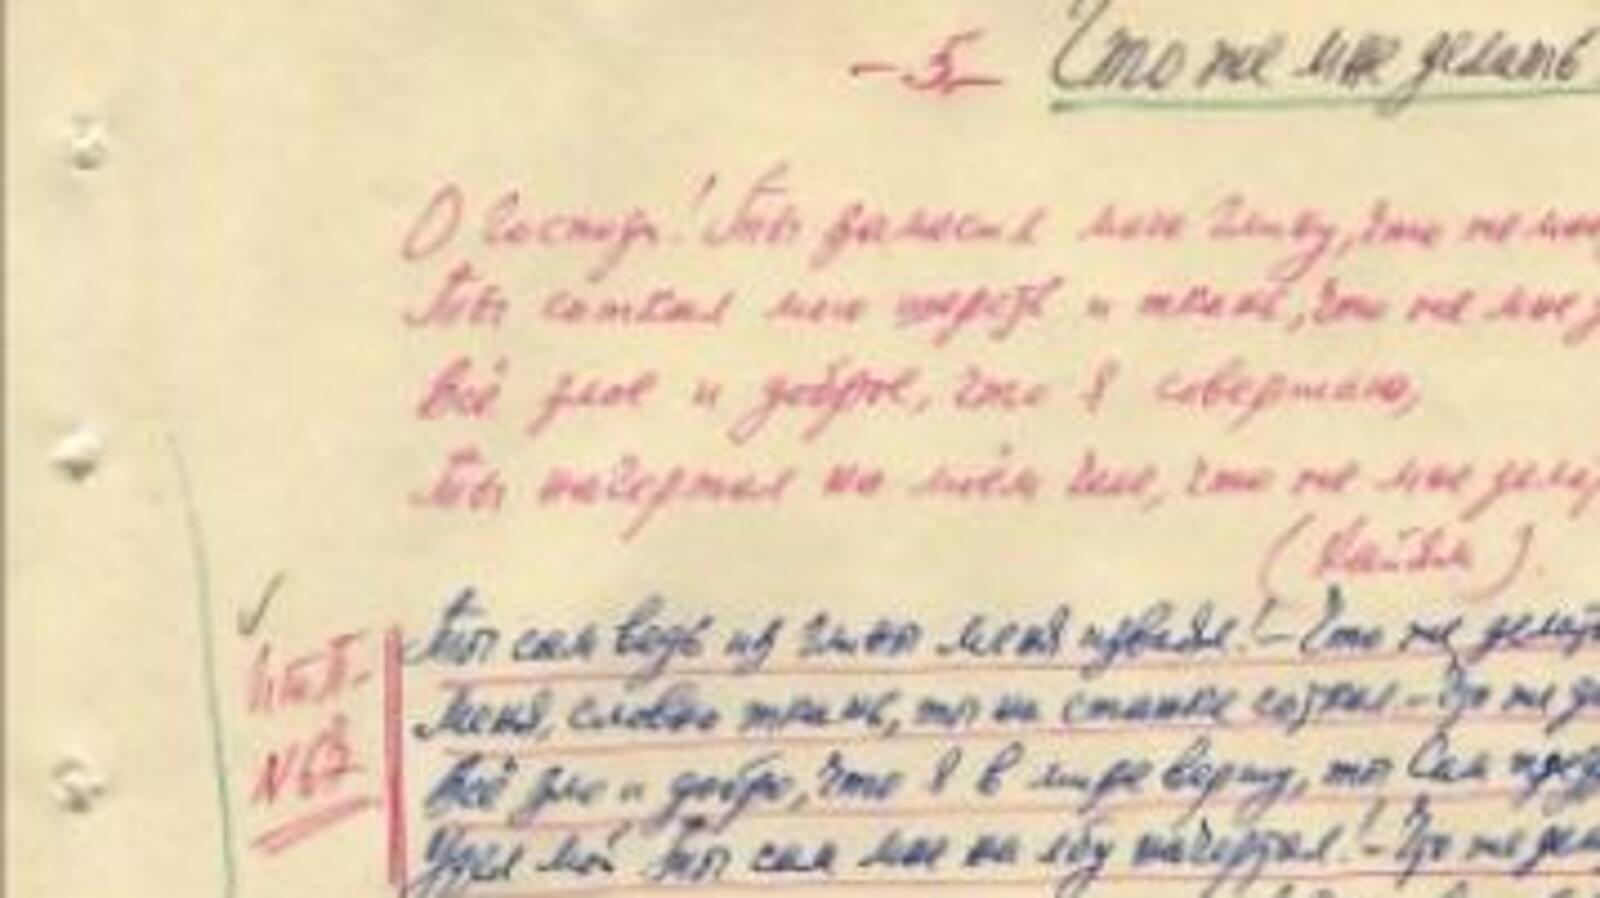 -5- Что же мне делать
О Господи! Ты замесил мою глину, что же мне
Ты соткал мою шерсть и ткань, что же мне
Всё злое и доброе, что я совершаю,
Ты начертал на моём челе, что же мне делать
(Хайям).
Ты сам ведь из глины меня изваял! - Что же делать
Меня, словно ткань, ты на станке соткал. - Что же
Всё зло и добро, что я в мире вершу, ты Сам
Удел мой Ты сам мне на лбу начертал! - Что же